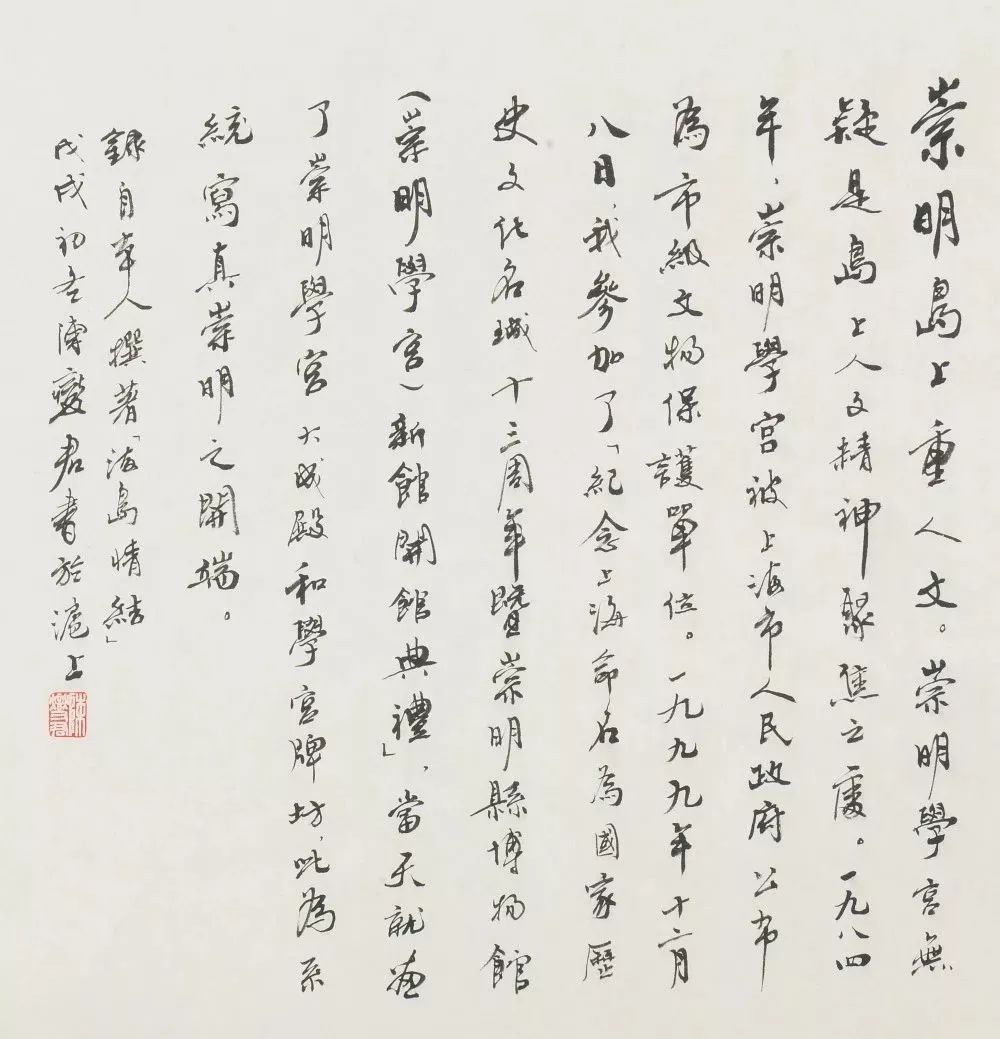 崇明島上重人文。崇明學宮無
疑是島上人文精神聚焦之處。一九八四
年、崇明學宮被上海市人民政府公布
為市級文物保護單位。一九九九年十二月
八日、我參加了「紀念上海命名為國家歷
史文化名城十三周年暨崇明縣博物館
(崇明學宮)新館開館典禮」、當天就畫
了崇明學宮大成殿和學宮牌坊，此為系
統寫真崇明之開端。
錄自本人撰著「海島情結」
戊戌初冬陳燮君書於滬上
陳燮君